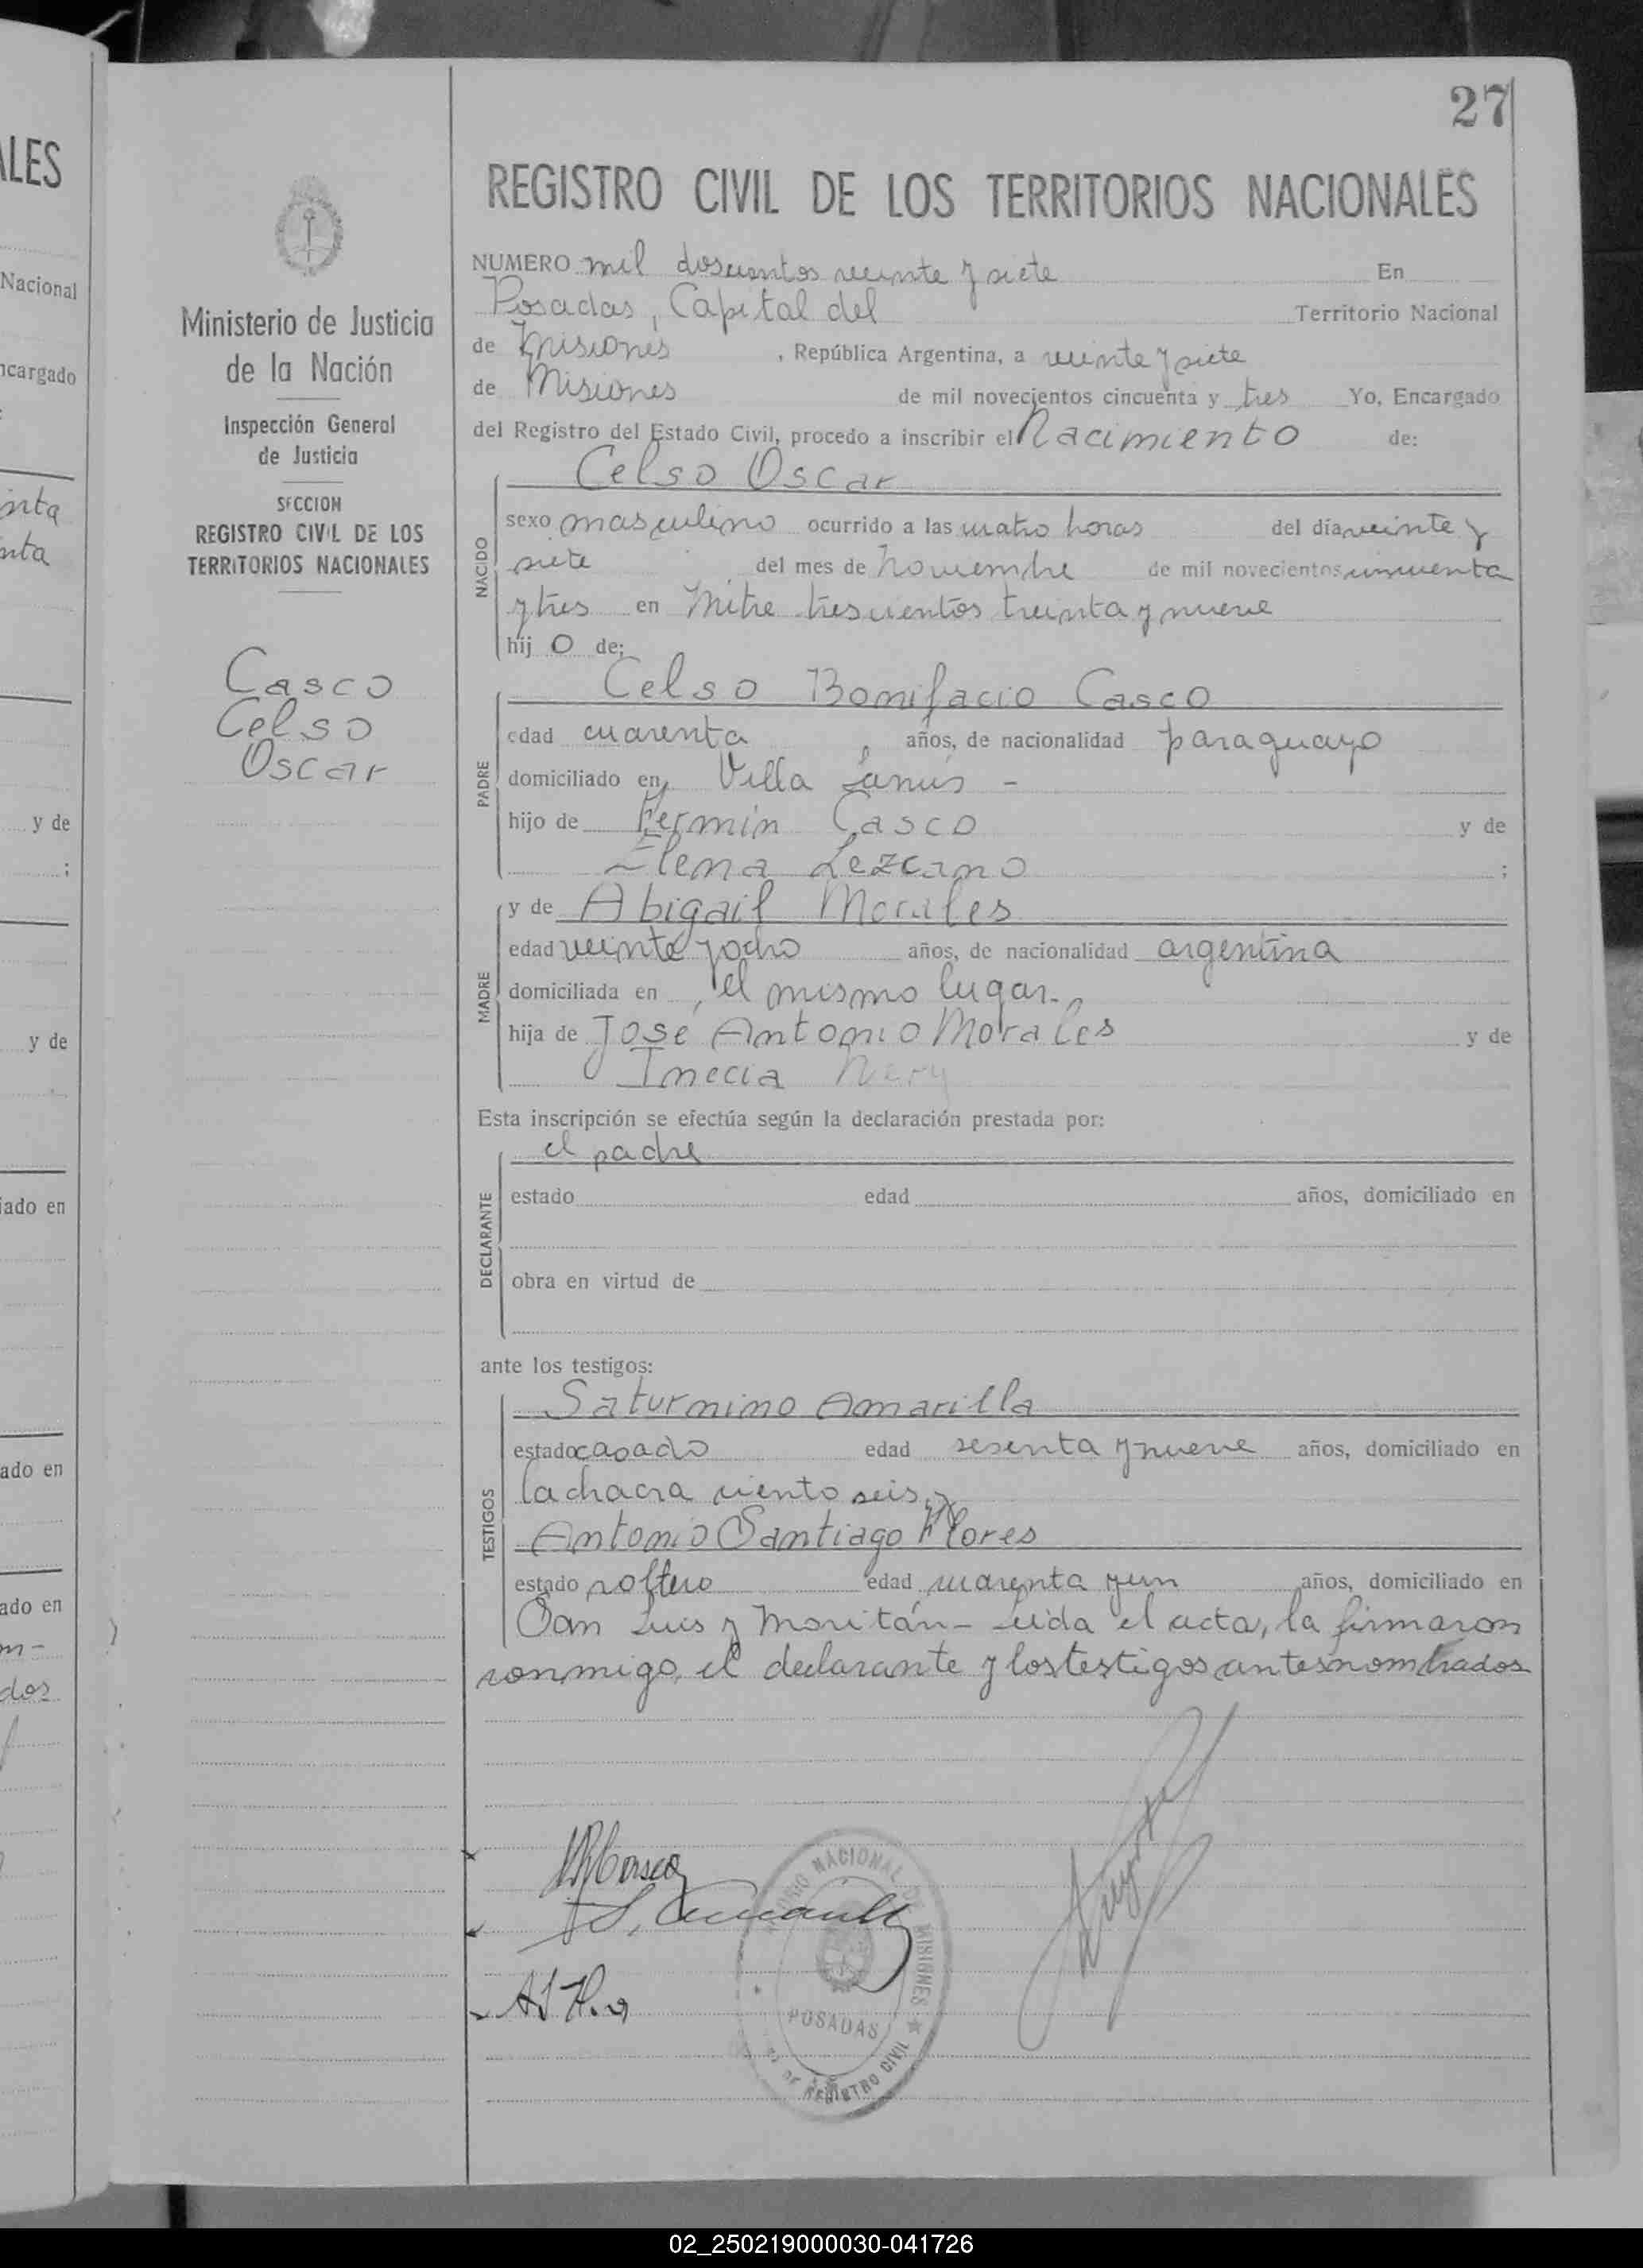 27
ALES
Nacional
ncargado
inta
nta
y de
;
y de
iado en
ado en
ado en
m-
dos
Ministerio de Justicia
de la Nación
Inspección General
de Justicia
SECCION
REGISTRO CIVIL DE LOS
TERRITORIOS NACIONALES
Casco
Celso
Oscar
REGISTRO CIVIL DE LOS TERRITORIOS NACIONALES
NUMERO mil doscientos veinte y siete En
Posadas, Capital del Territorio Nacional
de Misiones, República Argentina, a veinte y siete
de Misiones de mil novecientos cincuenta y tres Yo, Encargado
del Registro del Estado Civil, procedo a inscribir el Nacimiento de:
Celso Oscar
NACIDO
sexo masculino ocurrido a las cuatro horas del día veinte y
siete del mes de noviembre de mil novecientos cincuenta
y tres en Mitre trescientos treinta y nueve
hij o de:
Celso Bonifacio Casco
PADRE
edad cuarenta años, de nacionalidad paraguayo
domiciliado en Villa Lanús -
hijo de Fermin Casco y de
Elena Lezcano ;
y de Abigail Morales
MADRE
edad veinte y ocho años, de nacionalidad argentina
domiciliada en el mismo lugar.,
hija de José Antonio Morales y de
Inecia Nery
Esta inscripción se efectúa según la declaración prestada por:
el padre
DECLARANTE
estado edad años, domiciliado en
obra en virtud de
ante los testigos:
Saturnino Amarilla
TESTIGOS
estado casado edad sesenta y nueve años, domiciliado en
la chacra ciento seis, y
Antonio Santiago Flores
estado soltero edad cuarenta y un años, domiciliado en
San Luis y Moritán - Leida el acta, la firmaron
conmigo, el declarante y los testigos antes nombrados
TERRITORIO NACIONAL DE MISIONES
POSADAS
DE REGISTRO CIVIL
02_250219000030-041726